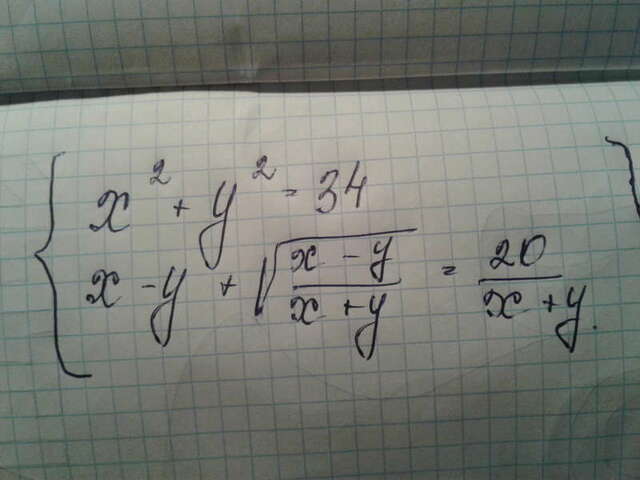 x² + y² = 34
x - y + √((x - y)/(x + y)) = 20/(x + y).